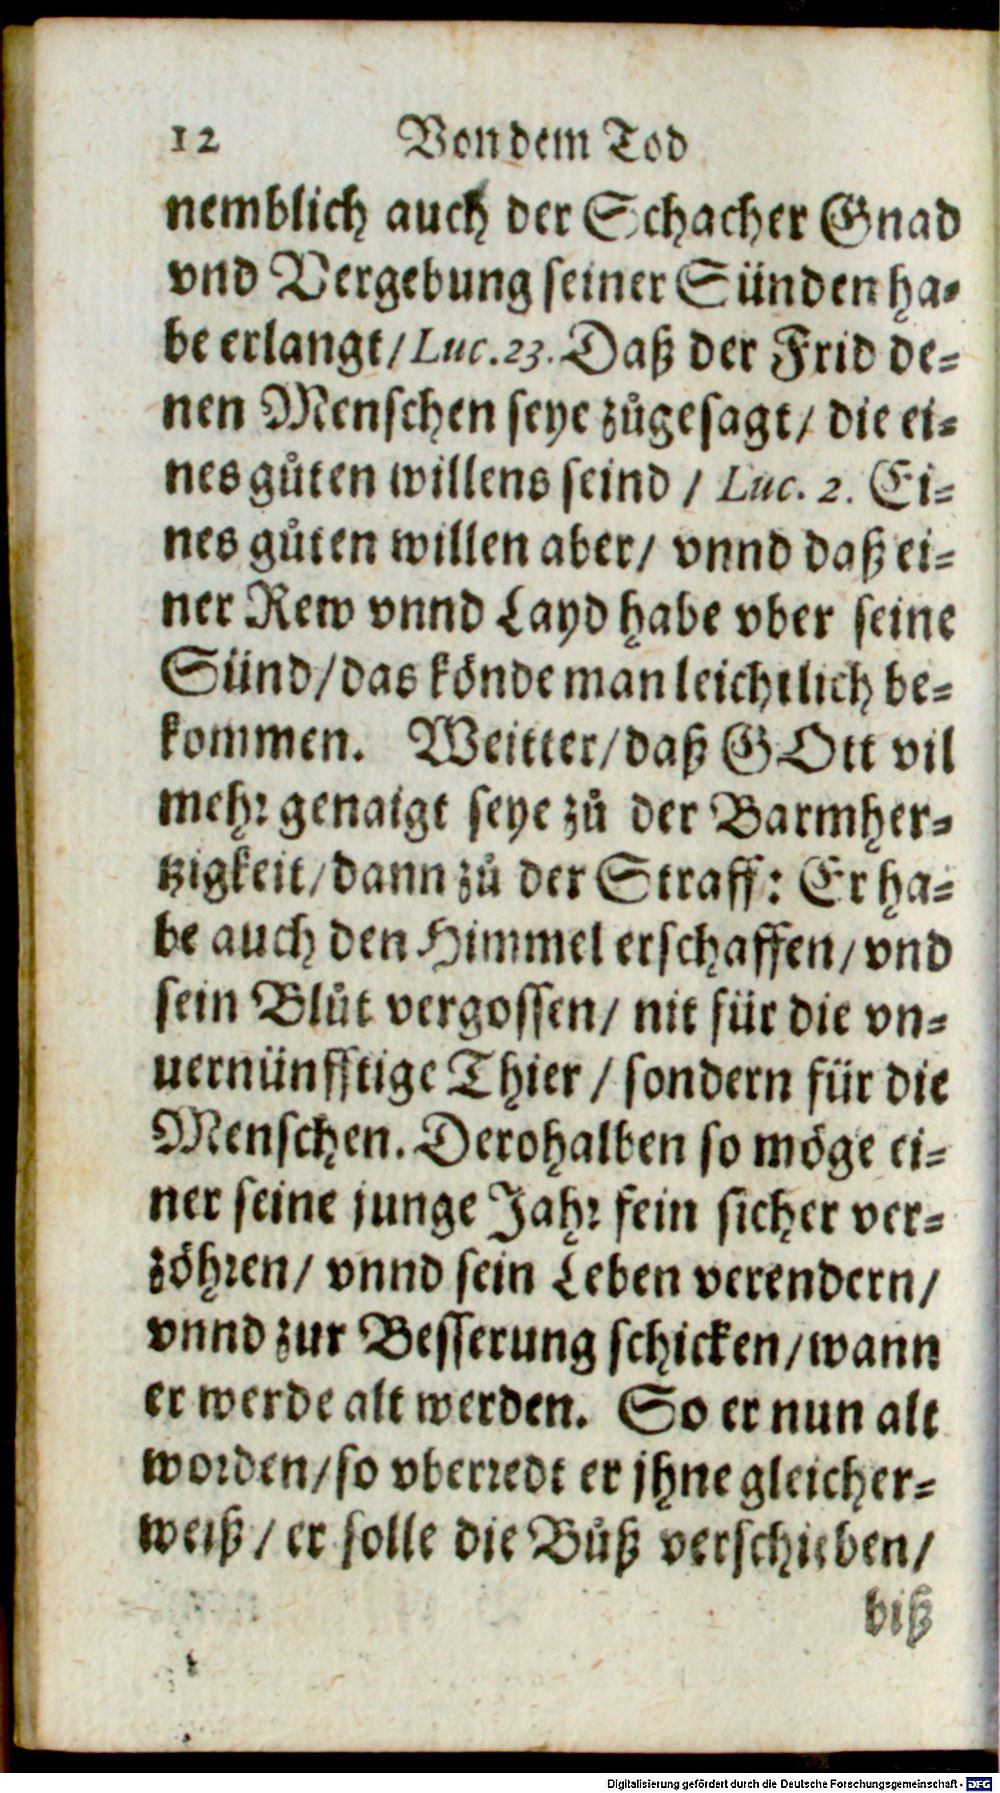 12 Von dem Tod
nemblich auch der Schacher Gnad
vnd Vergebung seiner Sünden ha-
be erlangt/ Luc. 23. Daß der Frid de-
nen Menschen seye zůgesagt/ die ei-
nes gůten willens seind / Luc. 2. Ei-
nes gůten willen aber/ vnnd daß ei-
ner Rew vnnd Layd habe vber seine
Sünd/ das könde man leichtlich be-
kommen. Weitter/ daß GOtt vil
mehr genaigt seye zů der Barmher-
tzigkeit/ dann zů der Straff: Er ha-
be auch den Himmel erschaffen/ vnd
sein Blůt vergossen/ nit für die vn-
uernünfftige Thier / sondern für die
Menschen. Derohalben so möge ei-
ner seine junge Jahr fein sicher ver-
zöhren/ vnnd sein Leben verendern/
vnnd zur Besserung schicken/ wann
er werde alt werden. So er nun alt
worden/ so vberredt er jhne gleicher-
weiß / er solle die Bůß verschieben/
biß
Digitalisierung gefördert durch die Deutsche Forschungsgemeinschaft - DFG